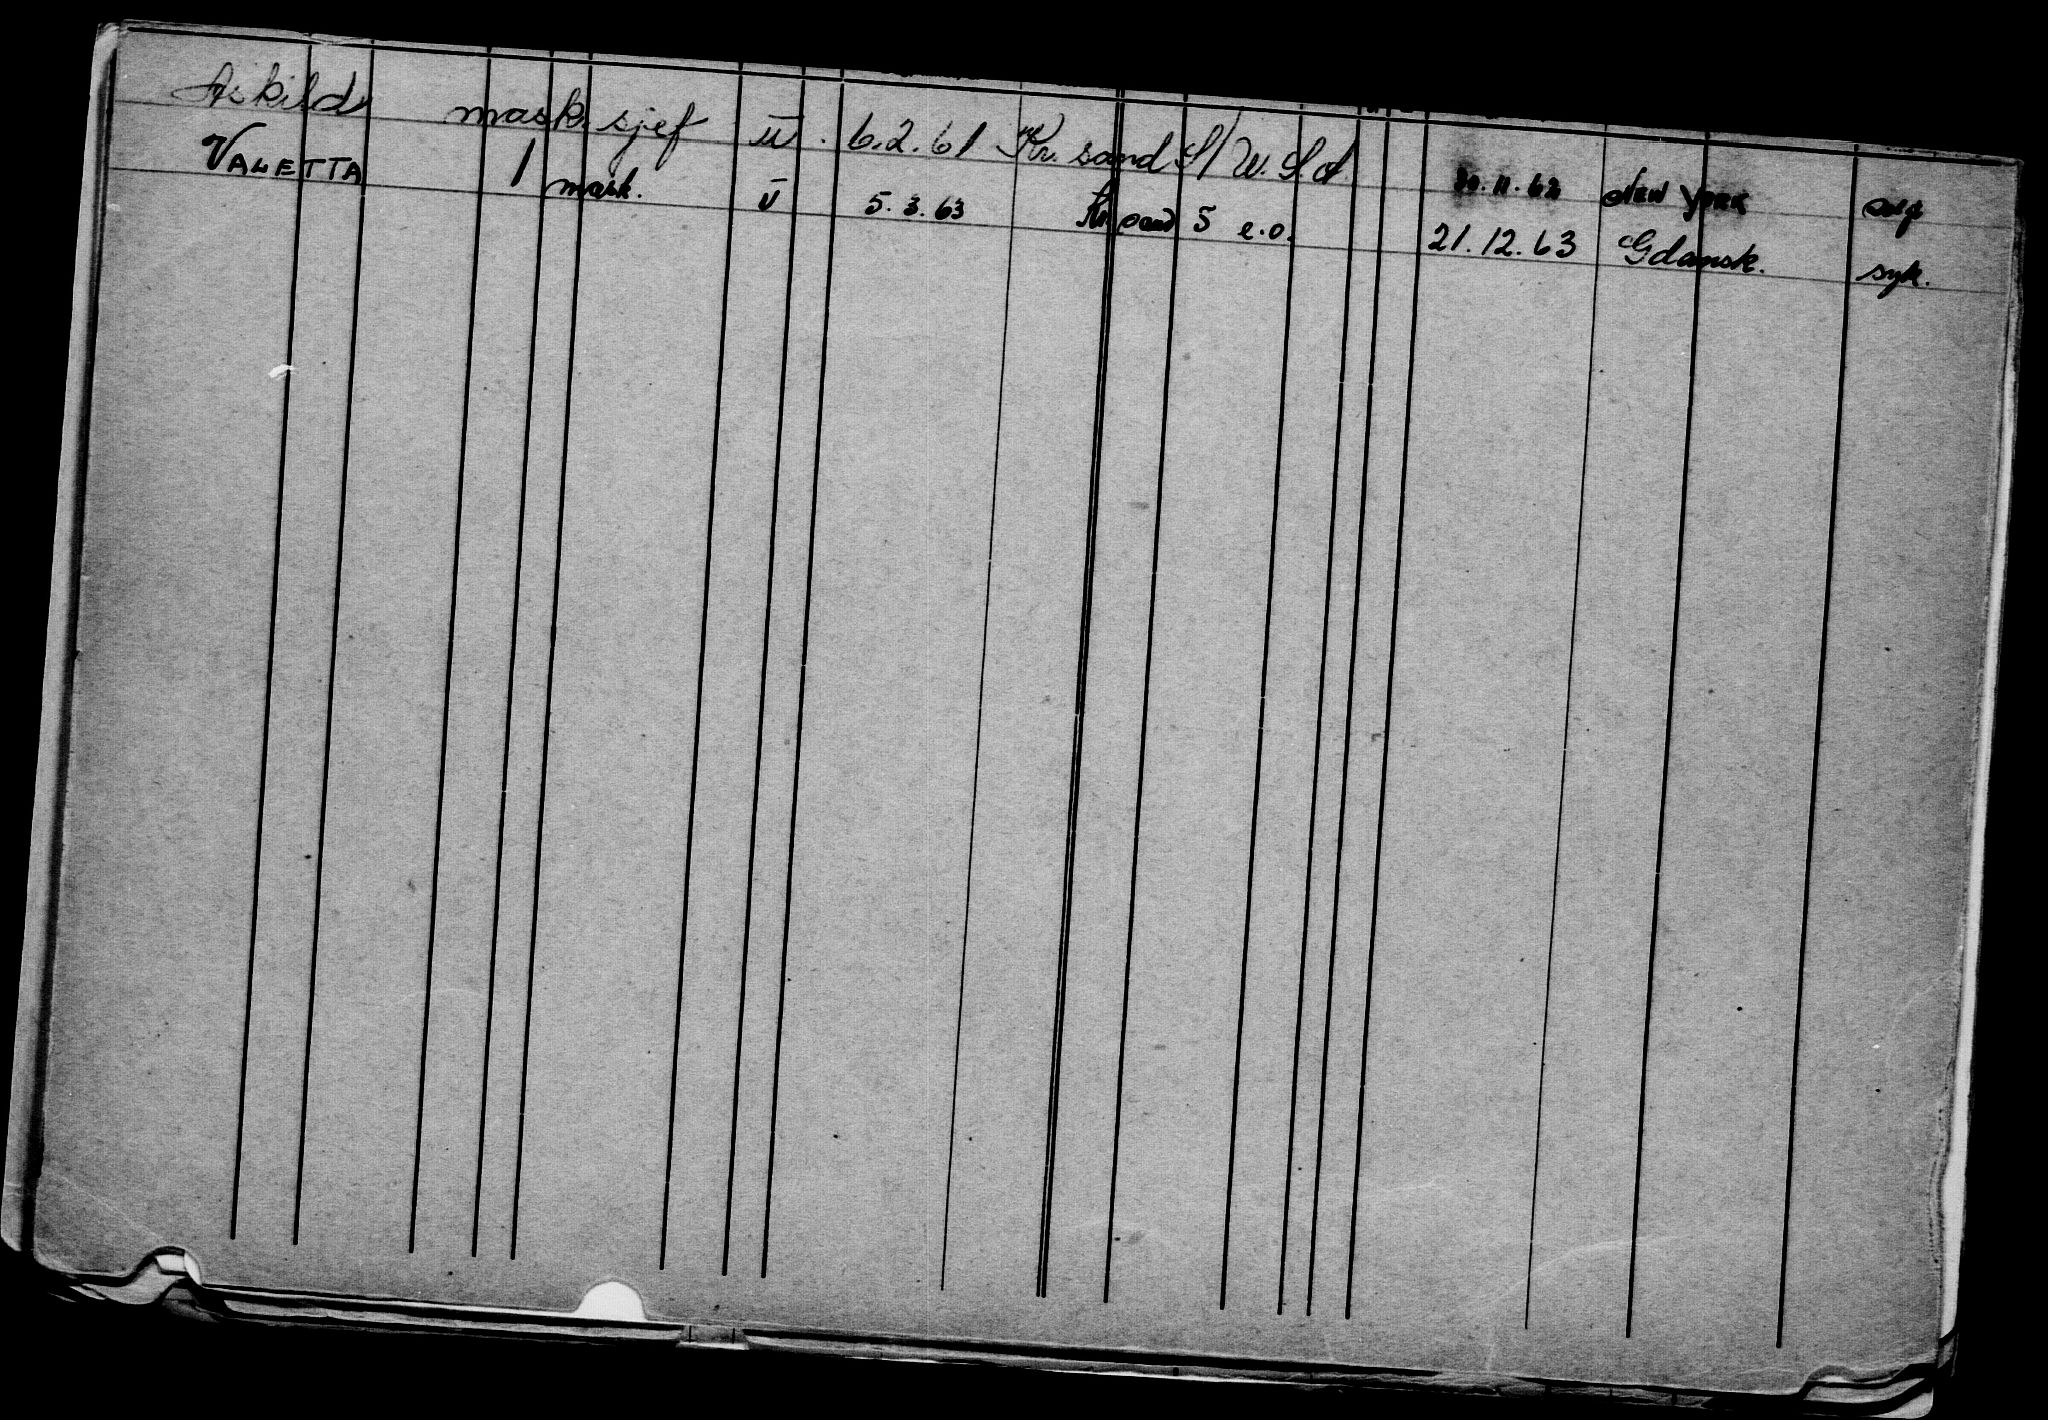 Askild mask. sjef u. 6.2.61 Kr. sand S/ U.S.A 30.11.62 NEW YORK
VALETTA 1 mask. u 5.3.63 Kr. sand S e.o. 21.12.63 Gdansk. syk.